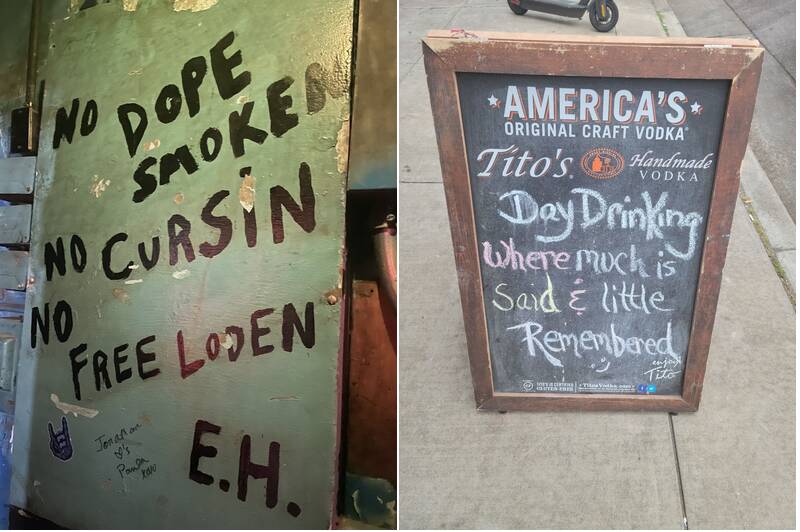 NO DOPE
SMOKEN
NO CURSIN
NO
FREE LODEN
E.H.
Jonathan
♡'s
Panda
AMERICA'S
ORIGINAL CRAFT VODKA®
Tito's Handmade
VODKA
Day Drinking
Where much is
Said & little
Remembered
enjoy
Tito
TitosVodka.com